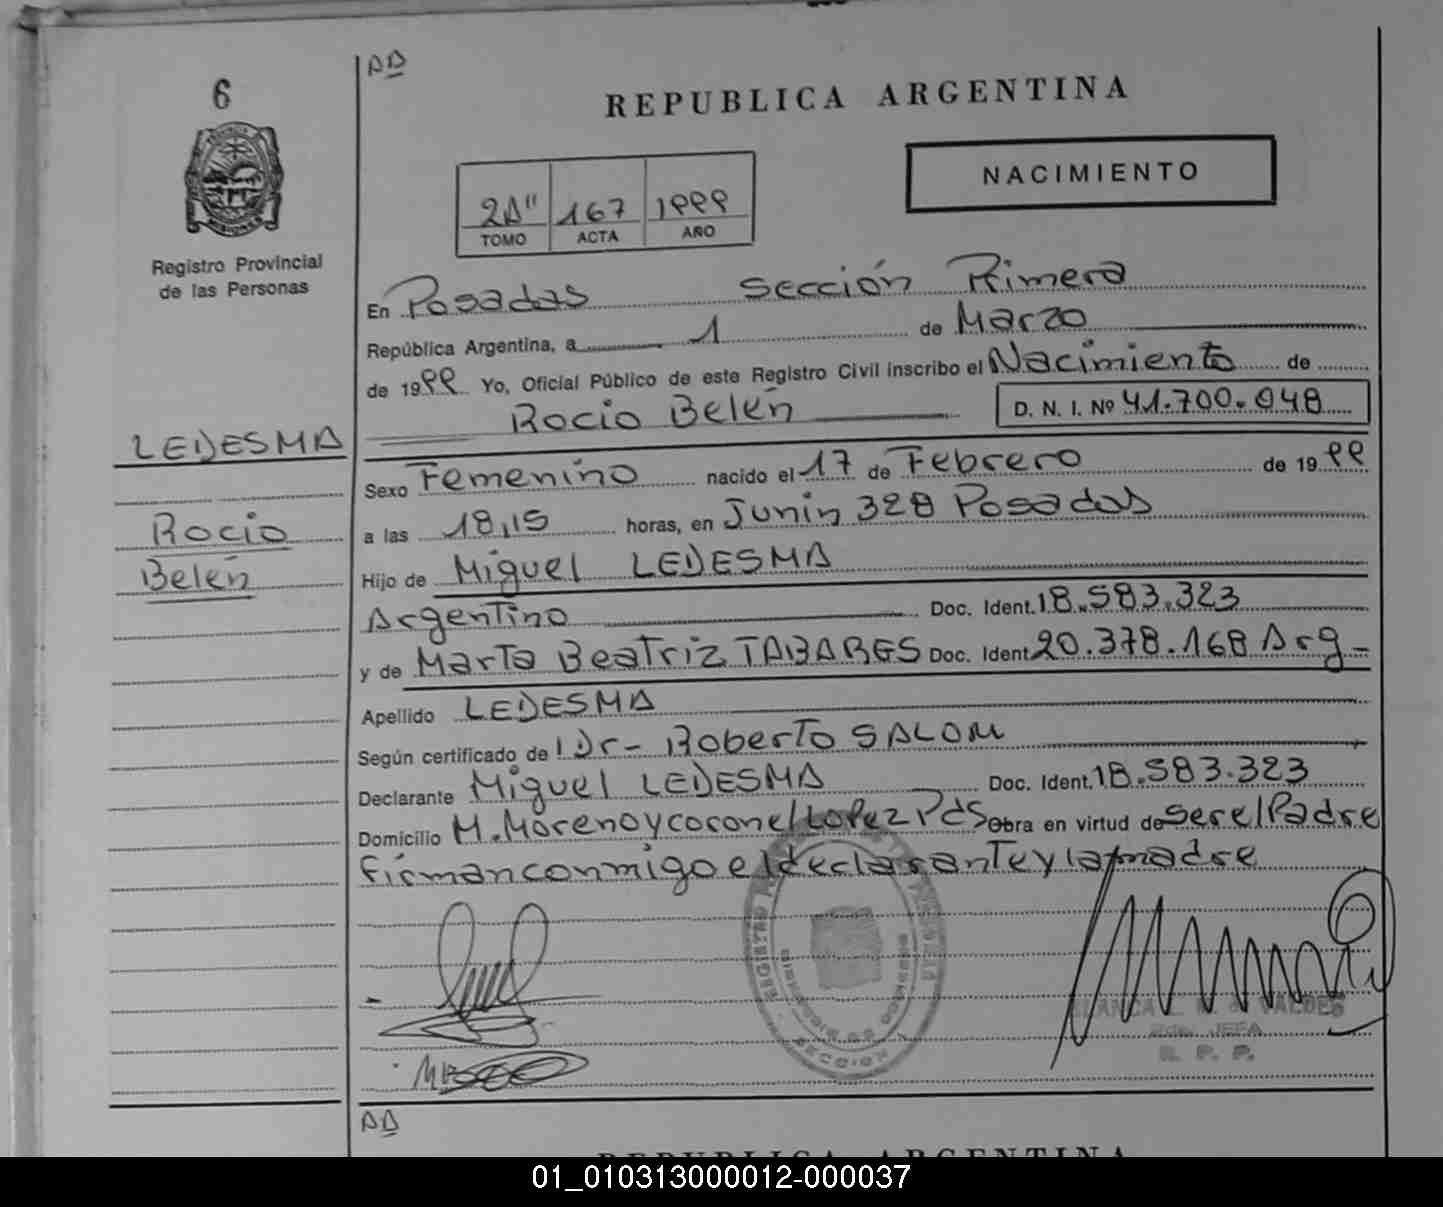 AD
6
REPUBLICA ARGENTINA
NACIMIENTO
2A" 167 1999
TOMO ACTA AÑO
Registro Provincial
de las Personas
En Posadas Sección Primera
República Argentina, a 1 de Marzo
de 1999 Yo, Oficial Público de este Registro Civil inscribo el Nacimiento de
Rocio Belén D. N. I. Nº 41.700.048
LEDESMA
Sexo Femenino nacido el 17 de Febrero de 1999
Rocio
a las 18,15 horas, en Junin 328 Posadas
Belén
Hijo de Miguel LEDESMA
Argentino Doc. Ident. 18.583.323
y de Marta Beatriz TABARES Doc. Ident. 20.378.168 Arg-
Apellido LEDESMA
Según certificado de Dr- Roberto SALOM
Declarante Miguel LEDESMA Doc. Ident. 18.583.323
Domicilio M. Moreno y coronel LOPez Pds Obra en virtud de ser el Padre
Firman conmigo el declarante y la madre
BLANCA VALDES
JEFA
R. P. P.
AD
REPUBLICA ARGENTINA
01_010313000012-000037